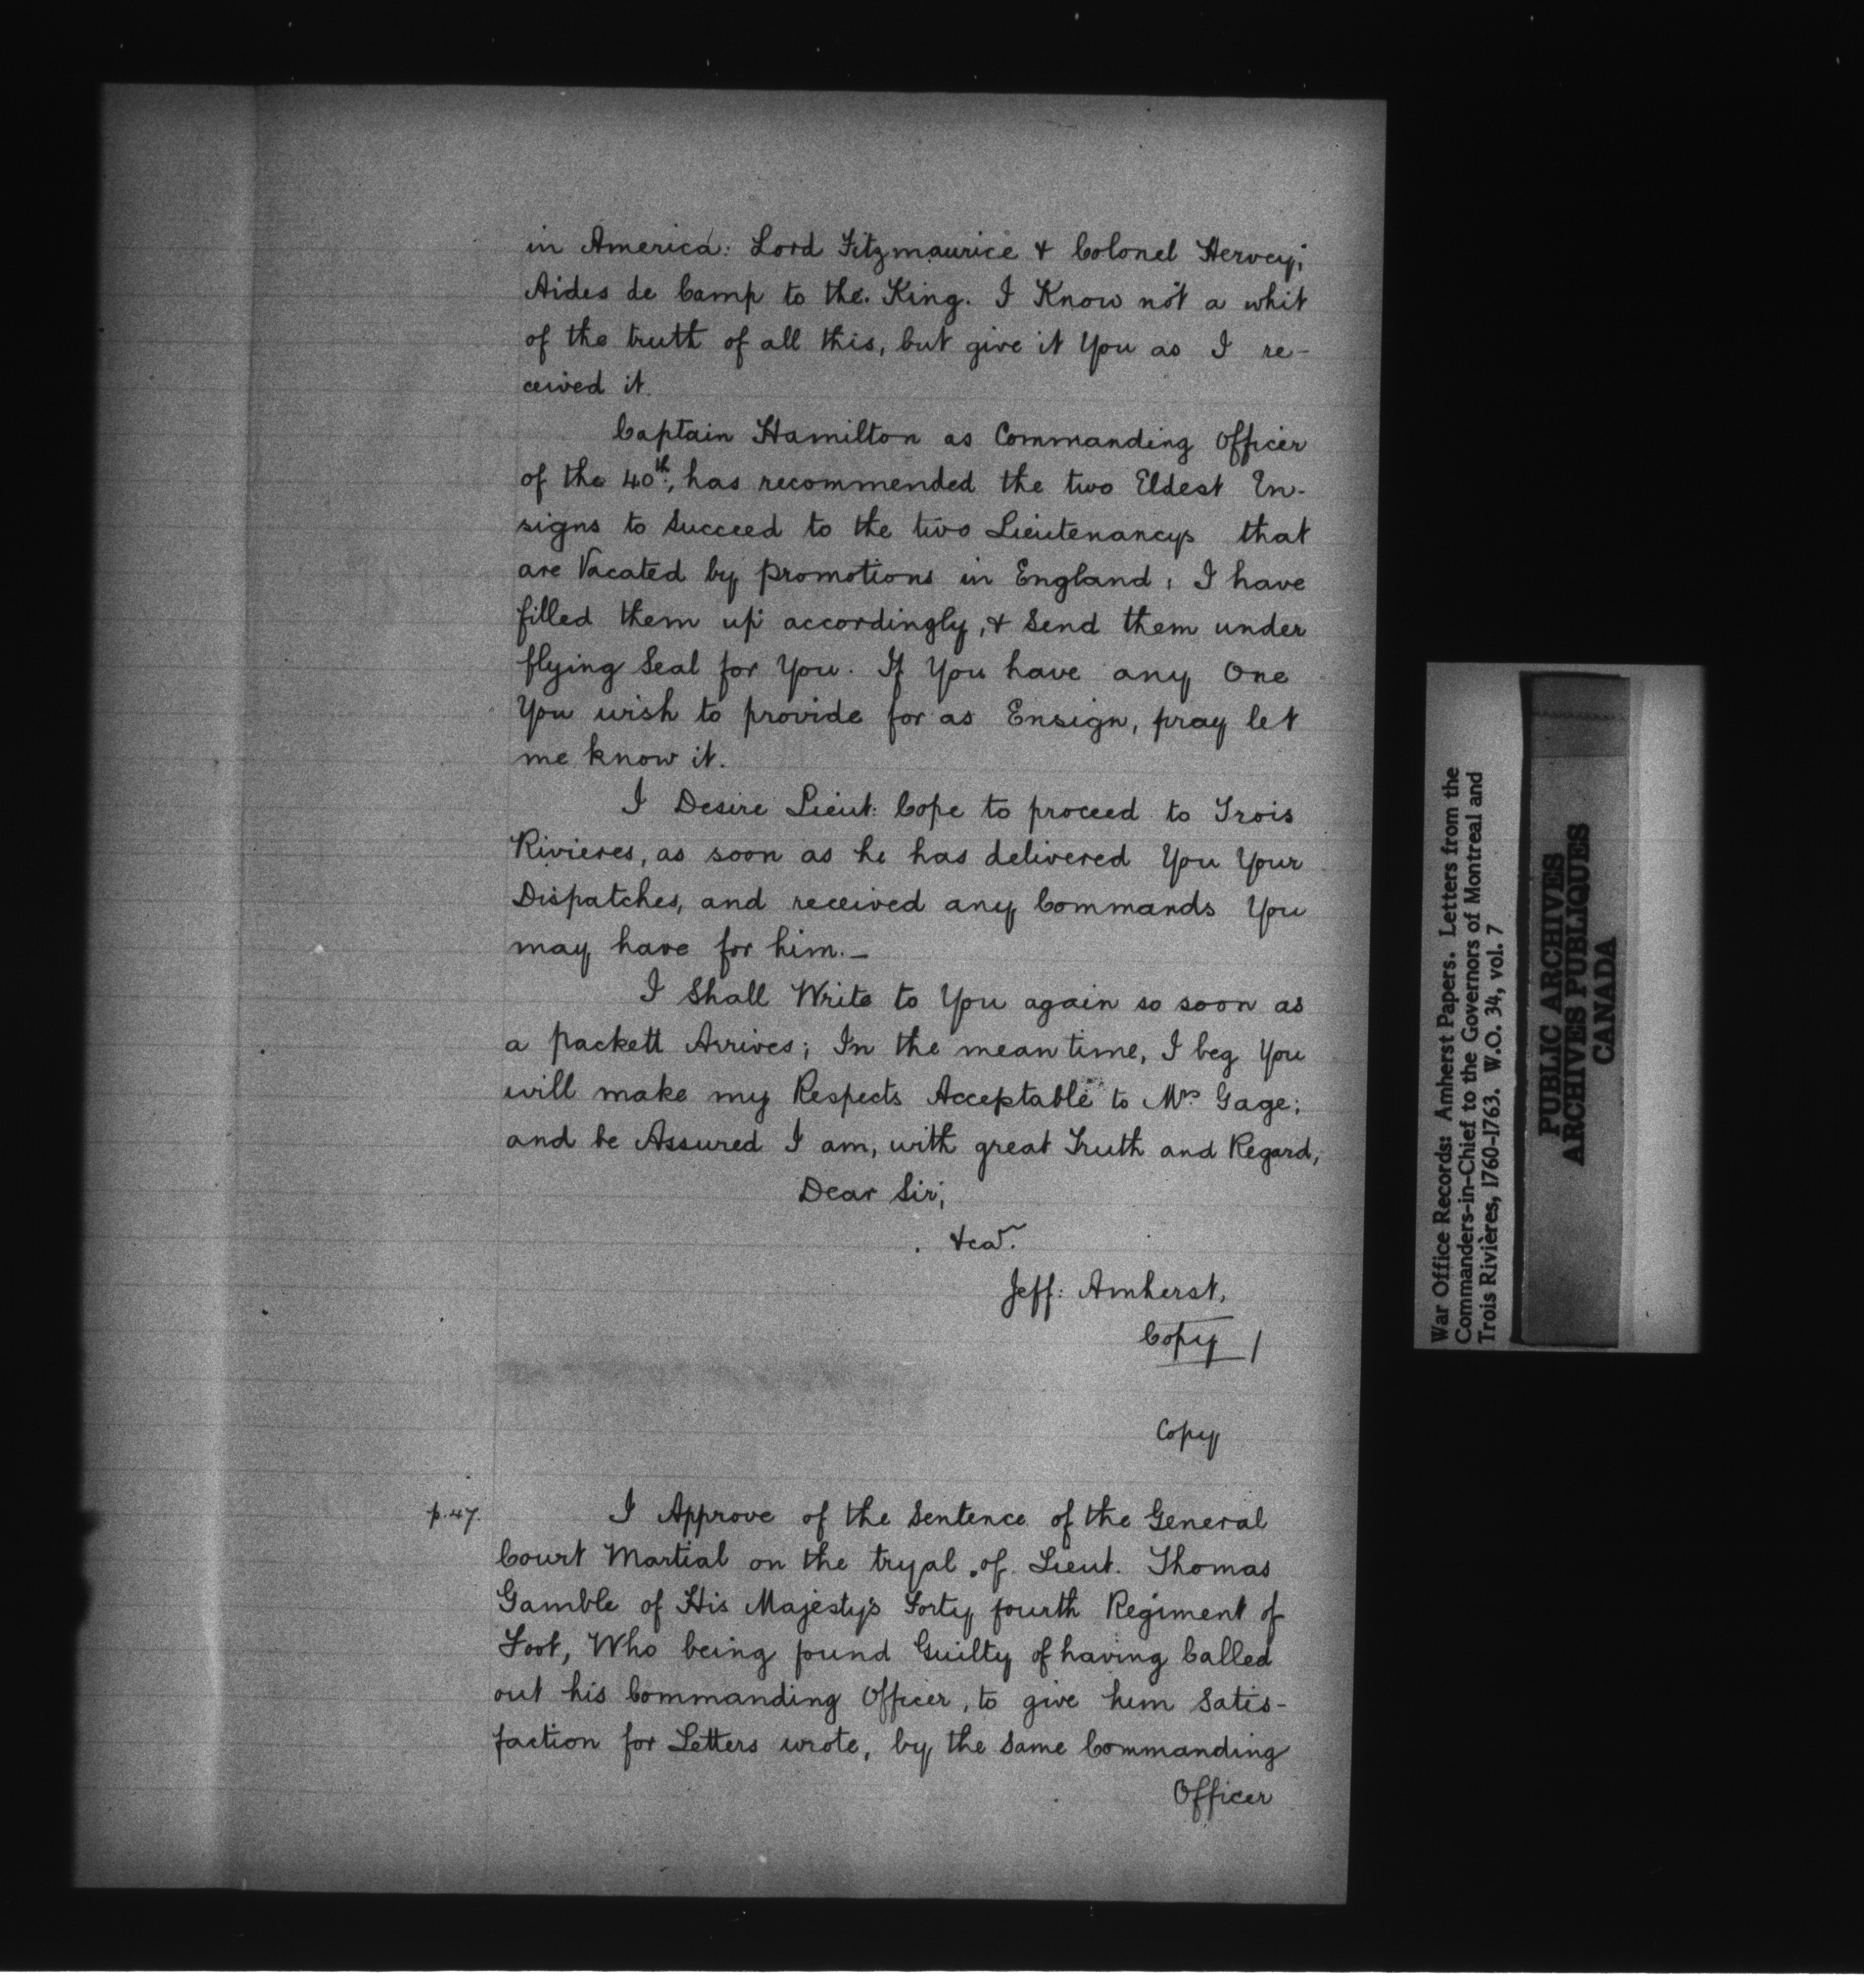 in America: Lord Fitzmaurice & Colonel Hervey;
Aides de Camp to the King. I Know not a whit
of the truth of all this, but give it You as I re-
ceived it.
Captain Hamilton as Commanding Officer
of the 40th:, has recommended the two Eldest En-
signs to Succeed to the two Lieutenancys that
are Vacated by promotions in England; I have
filled them up accordingly, & Send them under
flying Seal for You. If You have any One
You wish to provide for as Ensign, pray let
me know it.
I Desire Lieut: Cope to proceed to Trois
Rivieres, as soon as he has delivered You Your
Dispatches, and received any Commands You
may have for him.—
I Shall Write to You again so soon as
a packett Arrives; In the mean time, I beg You
will make my Respects Acceptable to Mrs Gage;
and be Assured I am, with great Truth and Regard,
Dear Sir;
&ca.
Jeff: Amherst,
Copy /
Copy
p.47.
I Approve of the Sentence of the General
Court Martial on the tryal of Lieut. Thomas
Gamble of His Majesty's Forty fourth Regiment of
Foot, Who being found Guilty of having Called
out his Commanding Officer, to give him Satis-
faction for Letters wrote, by the Same Commanding
Officer
War Office Records: Amherst Papers. Letters from the
Commanders-in-Chief to the Governors of Montreal and
Trois Rivières, 1760-1763. W.O. 34, vol. 7
PUBLIC ARCHIVES
ARCHIVES PUBLIQUES
CANADA